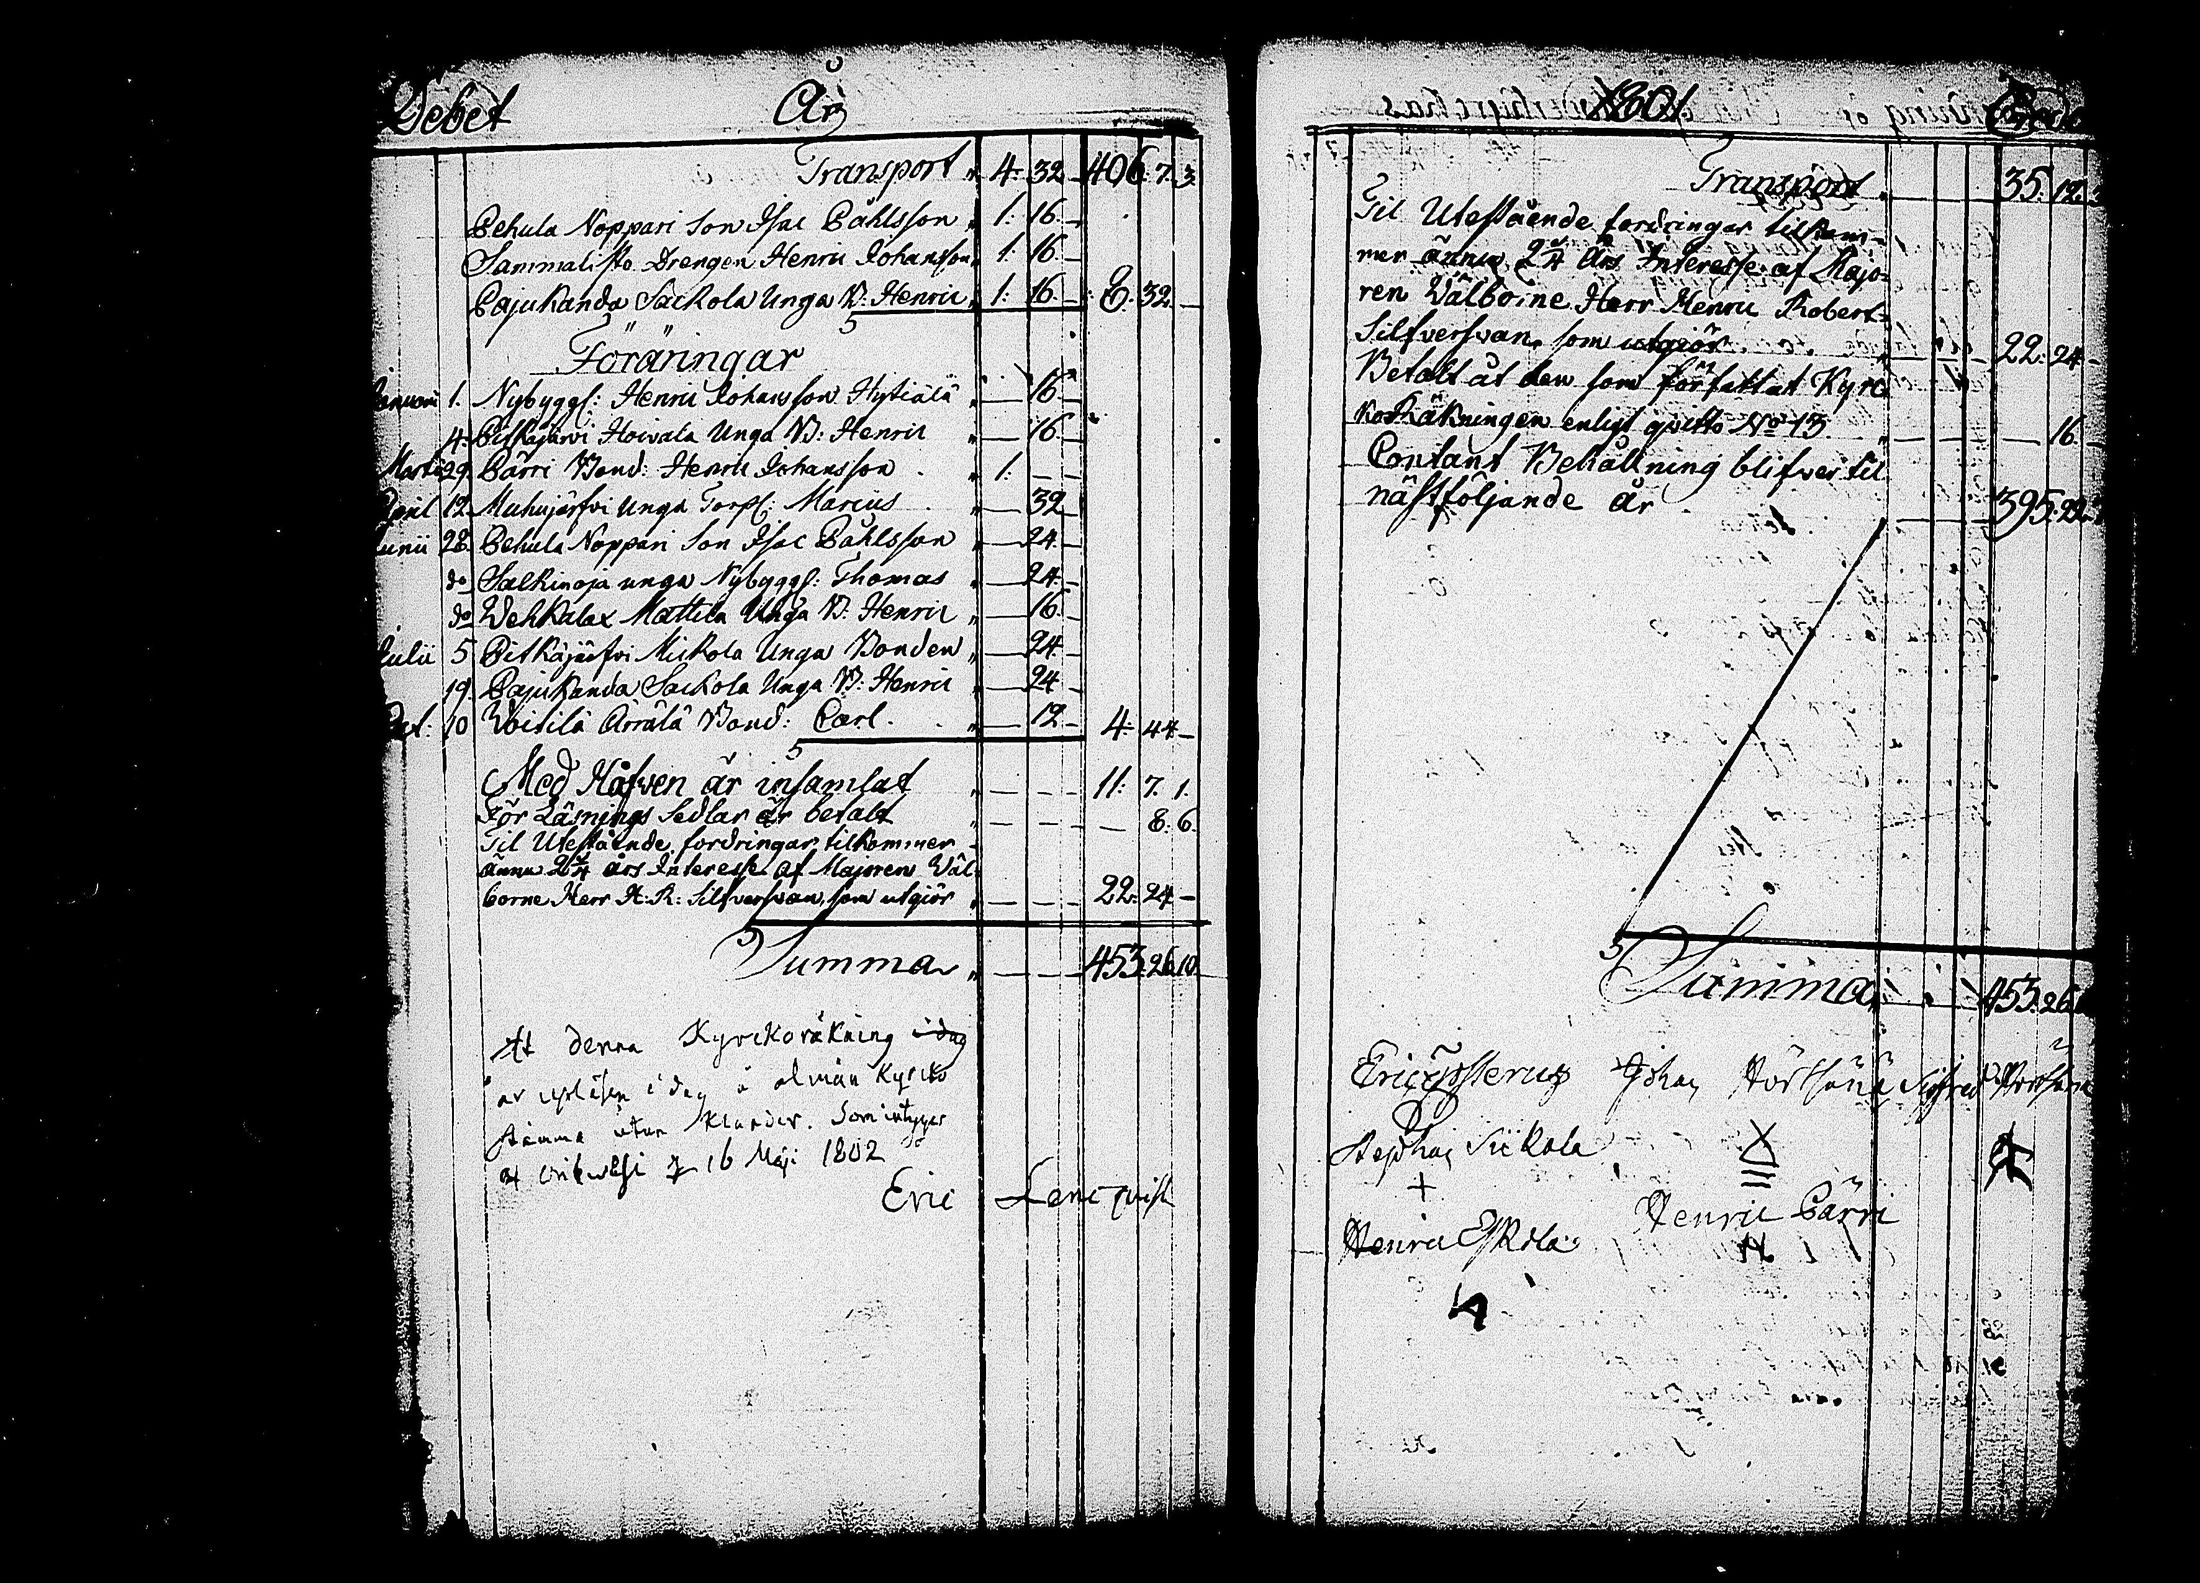 Debet År
Transport „ 4: 32 — 406: 7. 3.
Pehula Noppari Son Isac Påhlsson „ 1: 16. —
Sammalisto Drengen Henric Johansson „ 1. 16. —
Pajukanda Sackola Unga B: Henric „ 1: 16. — 8. 32. —
Föräningar
Januari 1. Nybyggs: Henric Johansson Hytiälä „ — 16.
4. Pitkäjärvi Hoivala Unga B: Henric „ — 16. —
Martii 29. Pärri Bond: Henric Johansson „ 1: — —
April 12. Muhujärfvi Unga Torp: Marcus „ — 32 —
Junii 28. Pehula Noppari Son Isac Påhlsson „ — 24. —
do Salkinoja unga Nybyggs: Thomas „ — 24. —
do Wehkalax Mattila Unga B: Henric „ — 16. —
Julii 5 Pitkäjärfvi Mickola Unga Bonden „ — 24. —
19. Pajukanda Sackola Unga B: Henric „ — 24 —
Oct: 10 Woitilä Arrälä Bond: Carl. „ — 12 — 4: 44 —
Med Håfwen är insamlat „ — — — 11: 7. 1.
För Läsnings Sedlar är betalt „ — — — — 8: 6.
Til Utestående fordringar tilkommer
ännu 2 1/4 års Interesse af Majoren Wäl-
borne Herr H: R: Silfversvan, som utgiör „ — — — 22: 24 —
Summa „ — — — 453: 26. 10.
At denna Kyrckoräkning idag
är upläsen i dag å alman Kyrcko
stämma utan klander. Som intygas
af d 16 Maji 1802
Eric Lencqvist
1801. Credit
Transport „ 35: 12.
Til Utestående fordringar tilkom-
mer ännu 2 1/4 Års Interesse af Majo-
ren Wälborne Herr Henric Robert
Silfversvan, som utgiör „ — — — 22: 24 —
Betalt åt den som författat Kyrc
ko Räkningen enligt qvitto No 13. „ — — — — 16. —
Contant Behållning blifver til
nästföljande år „ — — — 395: 22.
Summa „ — — — 453: 26.
Eric Johan Sigfred
Stephan Siikola
Henric Pärri
H
Henric Eskola